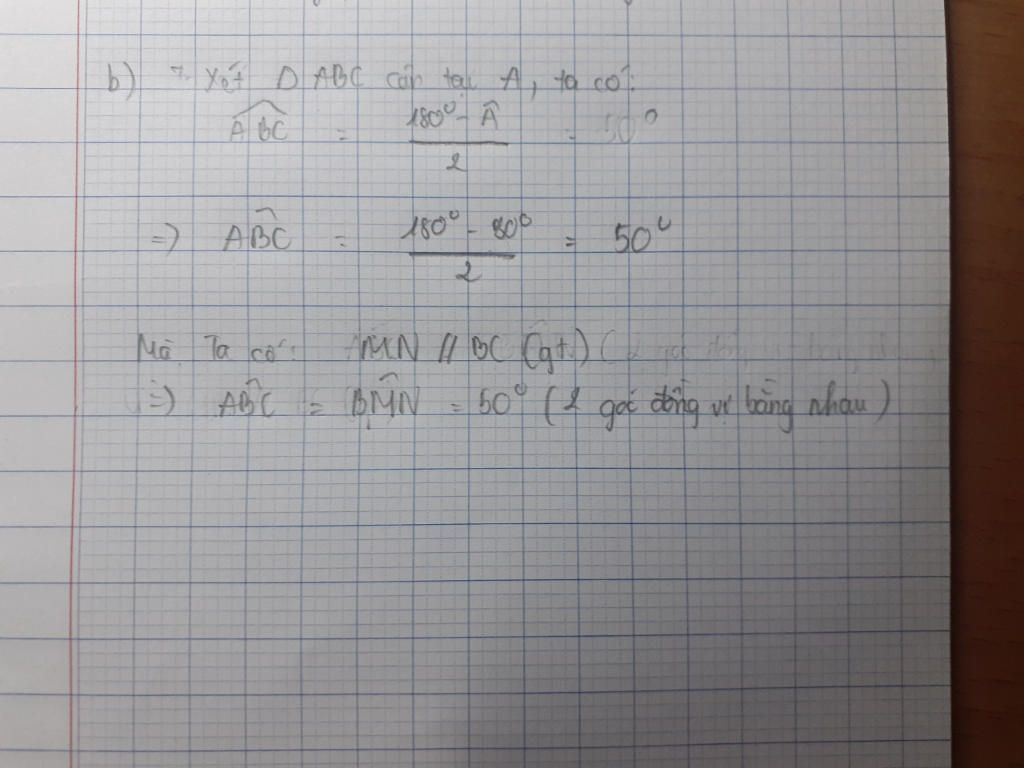 b) Xét Δ ABC cân tại A, ta có:
ABC = 180° - Â / 2 = 50°
=> ABC = 180° - 80° / 2 = 50°
Mà Ta có: MN // BC (gt)
=> ABC = BMN = 50° (2 góc đồng vị bằng nhau)